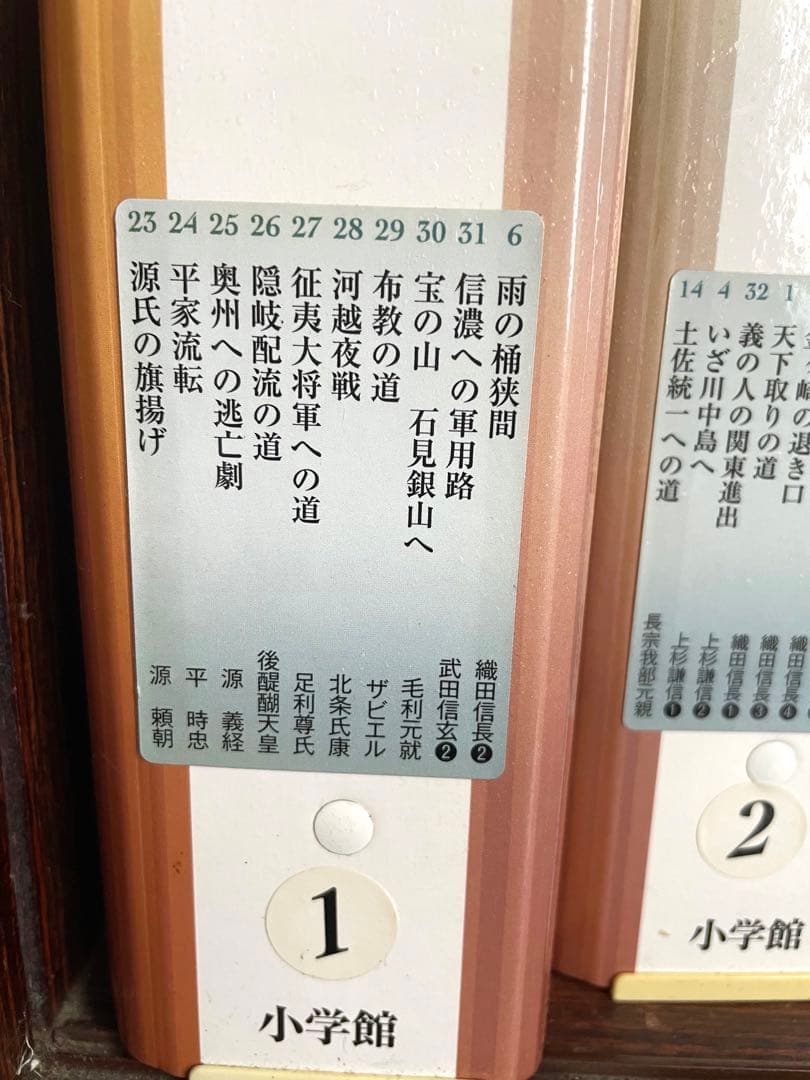 23 源氏の旗揚げ 源 頼朝
24 平家流転 平 時忠
25 奥州への逃亡劇 源 義経
26 隠岐配流の道 後醍醐天皇
27 征夷大将軍への道 足利尊氏
28 河越夜戦 北条氏康
29 布教の道 ザビエル
30 宝の山 石見銀山へ 毛利元就
31 信濃への軍用路 武田信玄❷
6 雨の桶狭間 織田信長❷
1
小学館
14 土佐統一への道 長宗我部元親
4 いざ川中島へ 上杉謙信❶
32 義の人の関東進出 上杉謙信❷
1 天下取りの道 織田信長❶
金ヶ崎の退き口 織田信長❸
織田信長❹
2
小学館